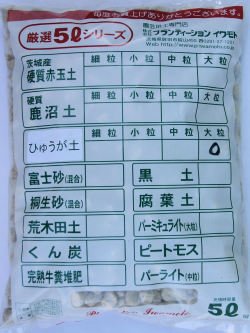 毎度お買上げありがとうございます。
厳選5ℓシリーズ
園芸用土専門店
プランティーション イワモト
茨城産
硬質赤玉土
細粒 小粒 中粒 大粒
硬質
鹿沼土
細粒 小粒 中粒 大粒
ひゅうが土
細粒 小粒 中粒 大粒
富士砂(混合) 黒土
桐生砂(混合) 腐葉土
荒木田土 バーミキュライト(大粒)
くん炭 ピートモス
完熟牛糞堆肥 パーライト(中粒)
5ℓ